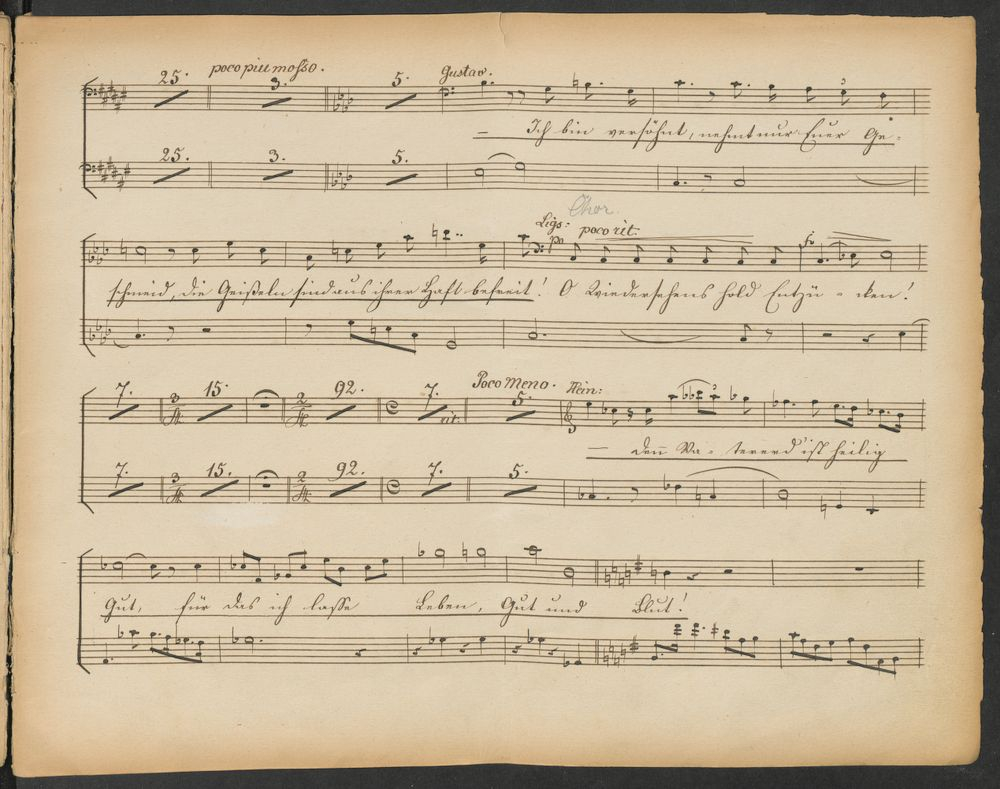 25. poco piu mosso. 3. 5. Gustav.
Ich bin versöhnt, nehmt nur Euer Ge-
25. 3. 5.
Chor.
Ligs: poco rit:
po fo
schmeid, die Geißeln sind aus ihrer Haft befreit! O Wiedersehens hold Entzü - cken!
7. 15. 92. 7. Poco Meno. 5. Hein:
3/4 2/4 rit:
3
denn Va - tererd' ist heilig
7. 15. 92. 7. 5.
3/4 2/4
Gut, für das ich lasse Leben, Gut und Blut!